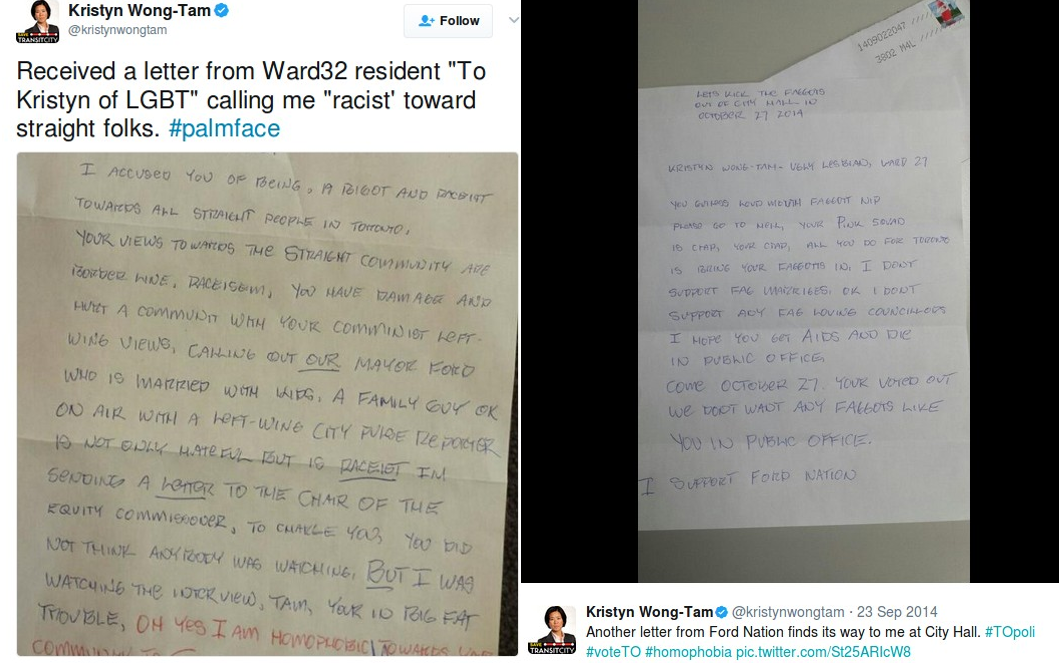 Kristyn Wong-Tam
@kristynwongtam
Follow
SAVE
TRANSITCITY
Received a letter from Ward32 resident "To
Kristyn of LGBT" calling me "racist' toward
straight folks. #palmface
I ACCUSED YOU OF BEING, A BIGOT AND RACEIST
TOWARDS ALL STRAIGHT PEOPLE IN TORONTO,
YOUR VIEWS TOWARDS THE STRAIGHT COMMUNITY ARE
BORDER LINE, RACEISEM, YOU HAVE DAMAGE AND
HURT A COMMUNIT WITH YOUR COMMINIST LEFT-
WING VIEWS, CALLING OUT OUR MAYOR FORD
WHO IS MARRIED WITH KIDS, A FAMILY GUY OK
ON AIR WITH A LEFT-WING CITY PULSE REPORTER
IS NOT ONLY HATEFUL BUT IS RACEIST IM
SENDING A LETTER TO THE CHAIR OF THE
EQUITY COMMISSONER, TO CHARGE YOU, YOU DID
NOT THINK ANYBODY WAS WATCHING, BUT I WAS
WATCHING THE INTERVIEW, TAM, YOUR IN BIG FAT
TROUBLE, OH YES I AM HOMOPHOBIC TOWARDS
COMMUNITY
1409022047
3802 MAL
LETS KICK THE FAGGOTS
OUT OF CITY HALL IN
OCTOBER 27 2014
KRISTYN WONG-TAM- UGLY LESBIAN, WARD 27
YOU LOUD MOUTH FAGGOTT NIP
PLEASE GO TO HELL, YOUR PINK SQUAD
IS CRAP, YOUR CRAP, ALL YOU DO FOR TORONTO
IS BRING YOUR FAGGOTTS IN, I DONT
SUPPORT FAG MARRIGES, OK I DONT
SUPPORT ANY FAG LOVING COUNCILLORS
I HOPE YOU GET AIDS AND DIE
IN PUBLIC OFFICE,
COME OCTOBER 27. YOUR VOTED OUT
WE DONT WANT ANY FAGGOTS LIKE
YOU IN PUBLIC OFFICE.
I SUPPORT FORD NATION
SAVE
TRANSITCITY
Kristyn Wong-Tam @kristynwongtam · 23 Sep 2014
Another letter from Ford Nation finds its way to me at City Hall. #TOpoli
#voteTO #homophobia pic.twitter.com/St25ARIcW8